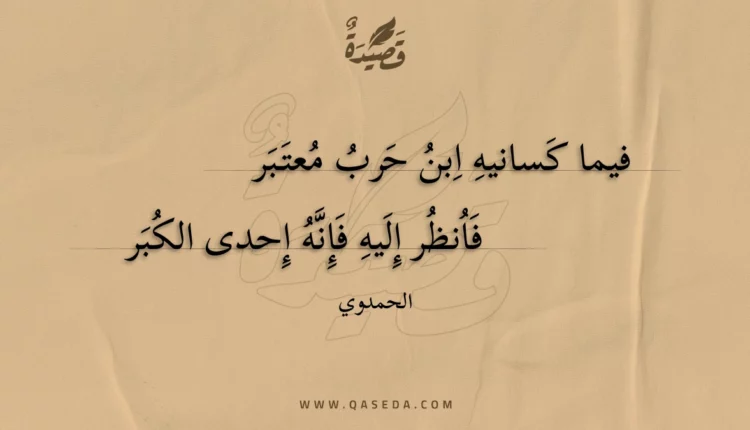 قَصِيدَةٌ
فيما كَسانيهِ اِبنُ حَربُ مُعتَبَر
فَاُنظُر إِلَيهِ فَإِنَّهُ إِحدى الكُبَر
الحمدوي
WWW.QASEDA.COM